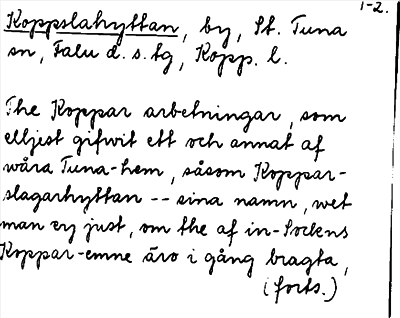 1-2.
Koppslahyttan, by, St. Tuna
sn, Falu d. s. tg, Kopp. l.
The Koppar arbetningar, som
elljest gifwit ett och annat af
wåra Tuna-hem, såsom Koppar-
slagarhyttan -- sina namn, wet
man ey just, om the af in-Sockens
Koppar-emne äro i gång bragta,
(forts.)